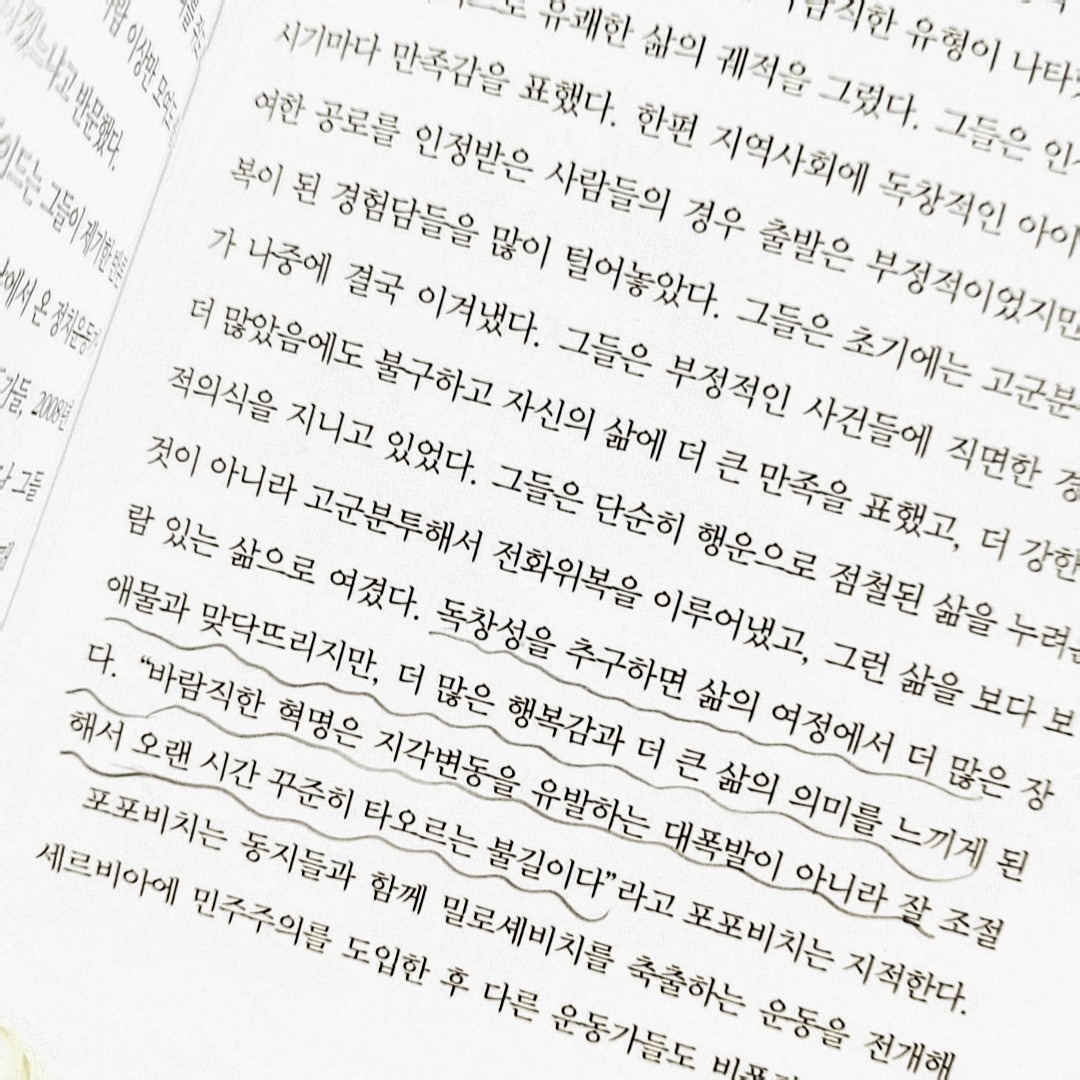 유쾌한 삶의 궤적을 그렸다. 그들은
유형이
시기마다 만족감을 표했다. 한편 지역사회에 독창적인
여한 공로를 인정받은 사람들의 경우 출발은 부정적이었지만
복이 된 경험담들을 많이 털어놓았다. 그들은 초기에는
가 나중에 결국 이겨냈다. 그들은 부정적인 사건들에 직면한
더 많았음에도 불구하고 자신의 삶에 더 큰 만족을 표했고, 더 강한
적의식을 지니고 있었다. 그들은 단순히 행운으로 점철된 삶을
것이 아니라 고군분투해서 전화위복을 이루어냈고, 그런 삶을 보다 보
람 있는 삶으로 여겼다. 독창성을 추구하면 삶의 여정에서 더 많은 장
애물과 맞닥뜨리지만, 더 많은 행복감과 더 큰 삶의 의미를 느끼게 된
다. “바람직한 혁명은 지각변동을 유발하는 대폭발이 아니라 잘 조절
해서 오랜 시간 꾸준히 타오르는 불길이다”라고 포포비치는 지적한다.
포포비치는 동지들과 함께 밀로셰비치를 축출하는 운동을 전개해
세르비아에 민주주의를 도입한 후 다른 운동가들도
반문했다.
그들이 제기한
에서 온
2008년
그들